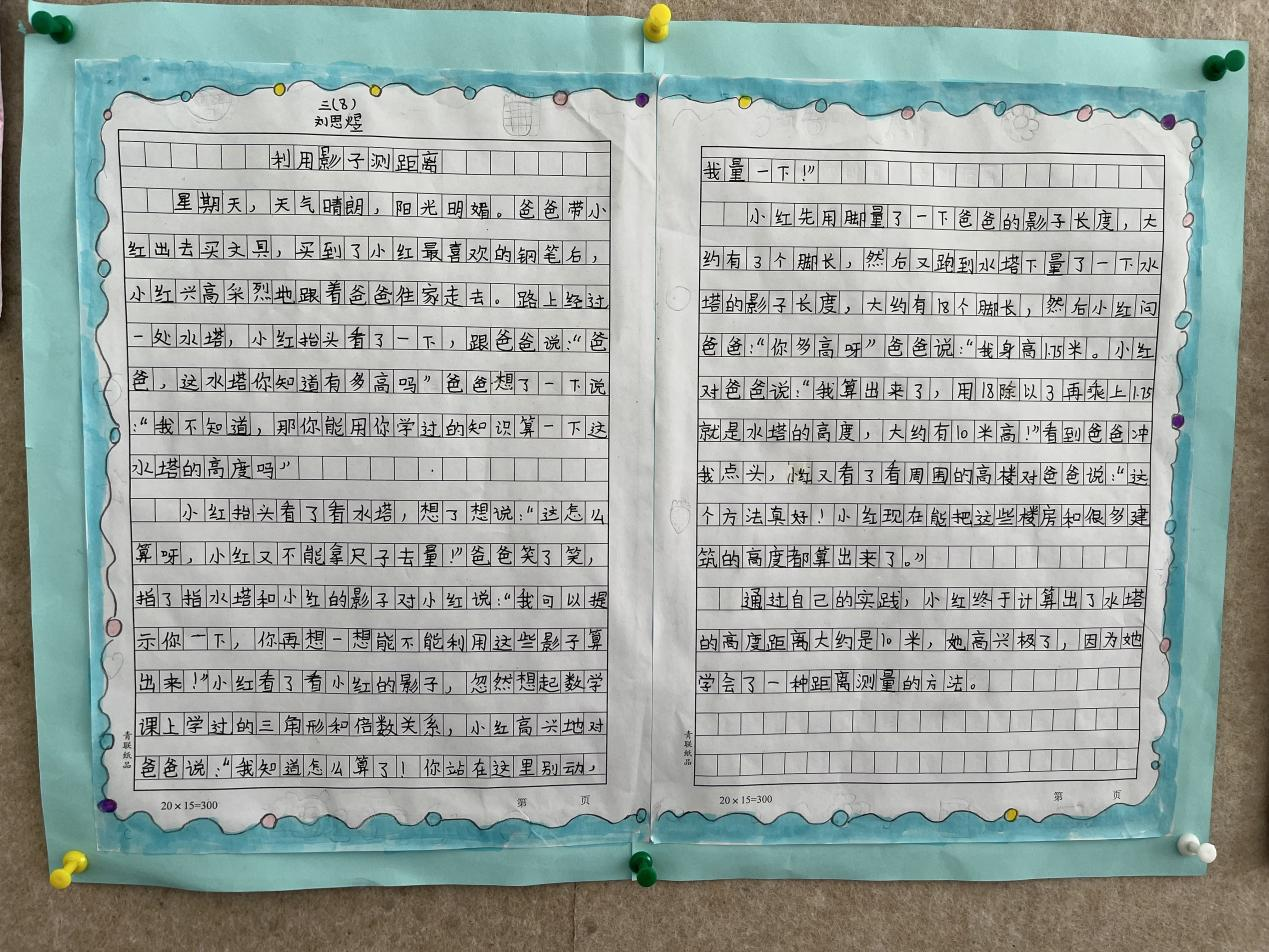 三(8)
刘思煜
利用影子测距离
星期天，天气晴朗，阳光明媚。爸爸带小
红出去买文具，买到了小红最喜欢的钢笔后，
小红兴高采烈地跟着爸爸往家走去。路上经过
一处水塔，小红抬头看了一下，跟爸爸说：“爸
爸，这水塔你知道有多高吗”爸爸想了一下说
：“我不知道，那你能用你学过的知识算一下这
水塔的高度吗”
小红抬头看了看水塔，想了想说：“这怎么
算呀，小红又不能拿尺子去量！”爸爸笑了笑，
指了指水塔和小红的影子对小红说：“我可以提
示你一下，你再想一想能不能利用这些影子算
出来！”小红看了看小红的影子，忽然想起数学
课上学过的三角形和倍数关系，小红高兴地对
爸爸说：“我知道怎么算了！你站在这里别动，
青联纸品
20×15=300
第 页
我量一下！”
小红先用脚量了一下爸爸的影子长度，大
约有3个脚长，然后又跑到水塔下量了一下水
塔的影子长度，大约有18个脚长，然后小红问
爸爸：“你多高呀”爸爸说：“我身高1.75米。小红
对爸爸说：“我算出来了，用18除以3再乘上1.75
就是水塔的高度，大约有10米高！”看到爸爸冲
我点头，小红又看了看周围的高楼对爸爸说：“这
个方法真好！小红现在能把这些楼房和很多建
筑的高度都算出来了。”
通过自己的实践，小红终于计算出了水塔
的高度距离大约是10米，她高兴极了，因为她
学会了一种距离测量的方法。
青联纸品
20×15=300
第 页